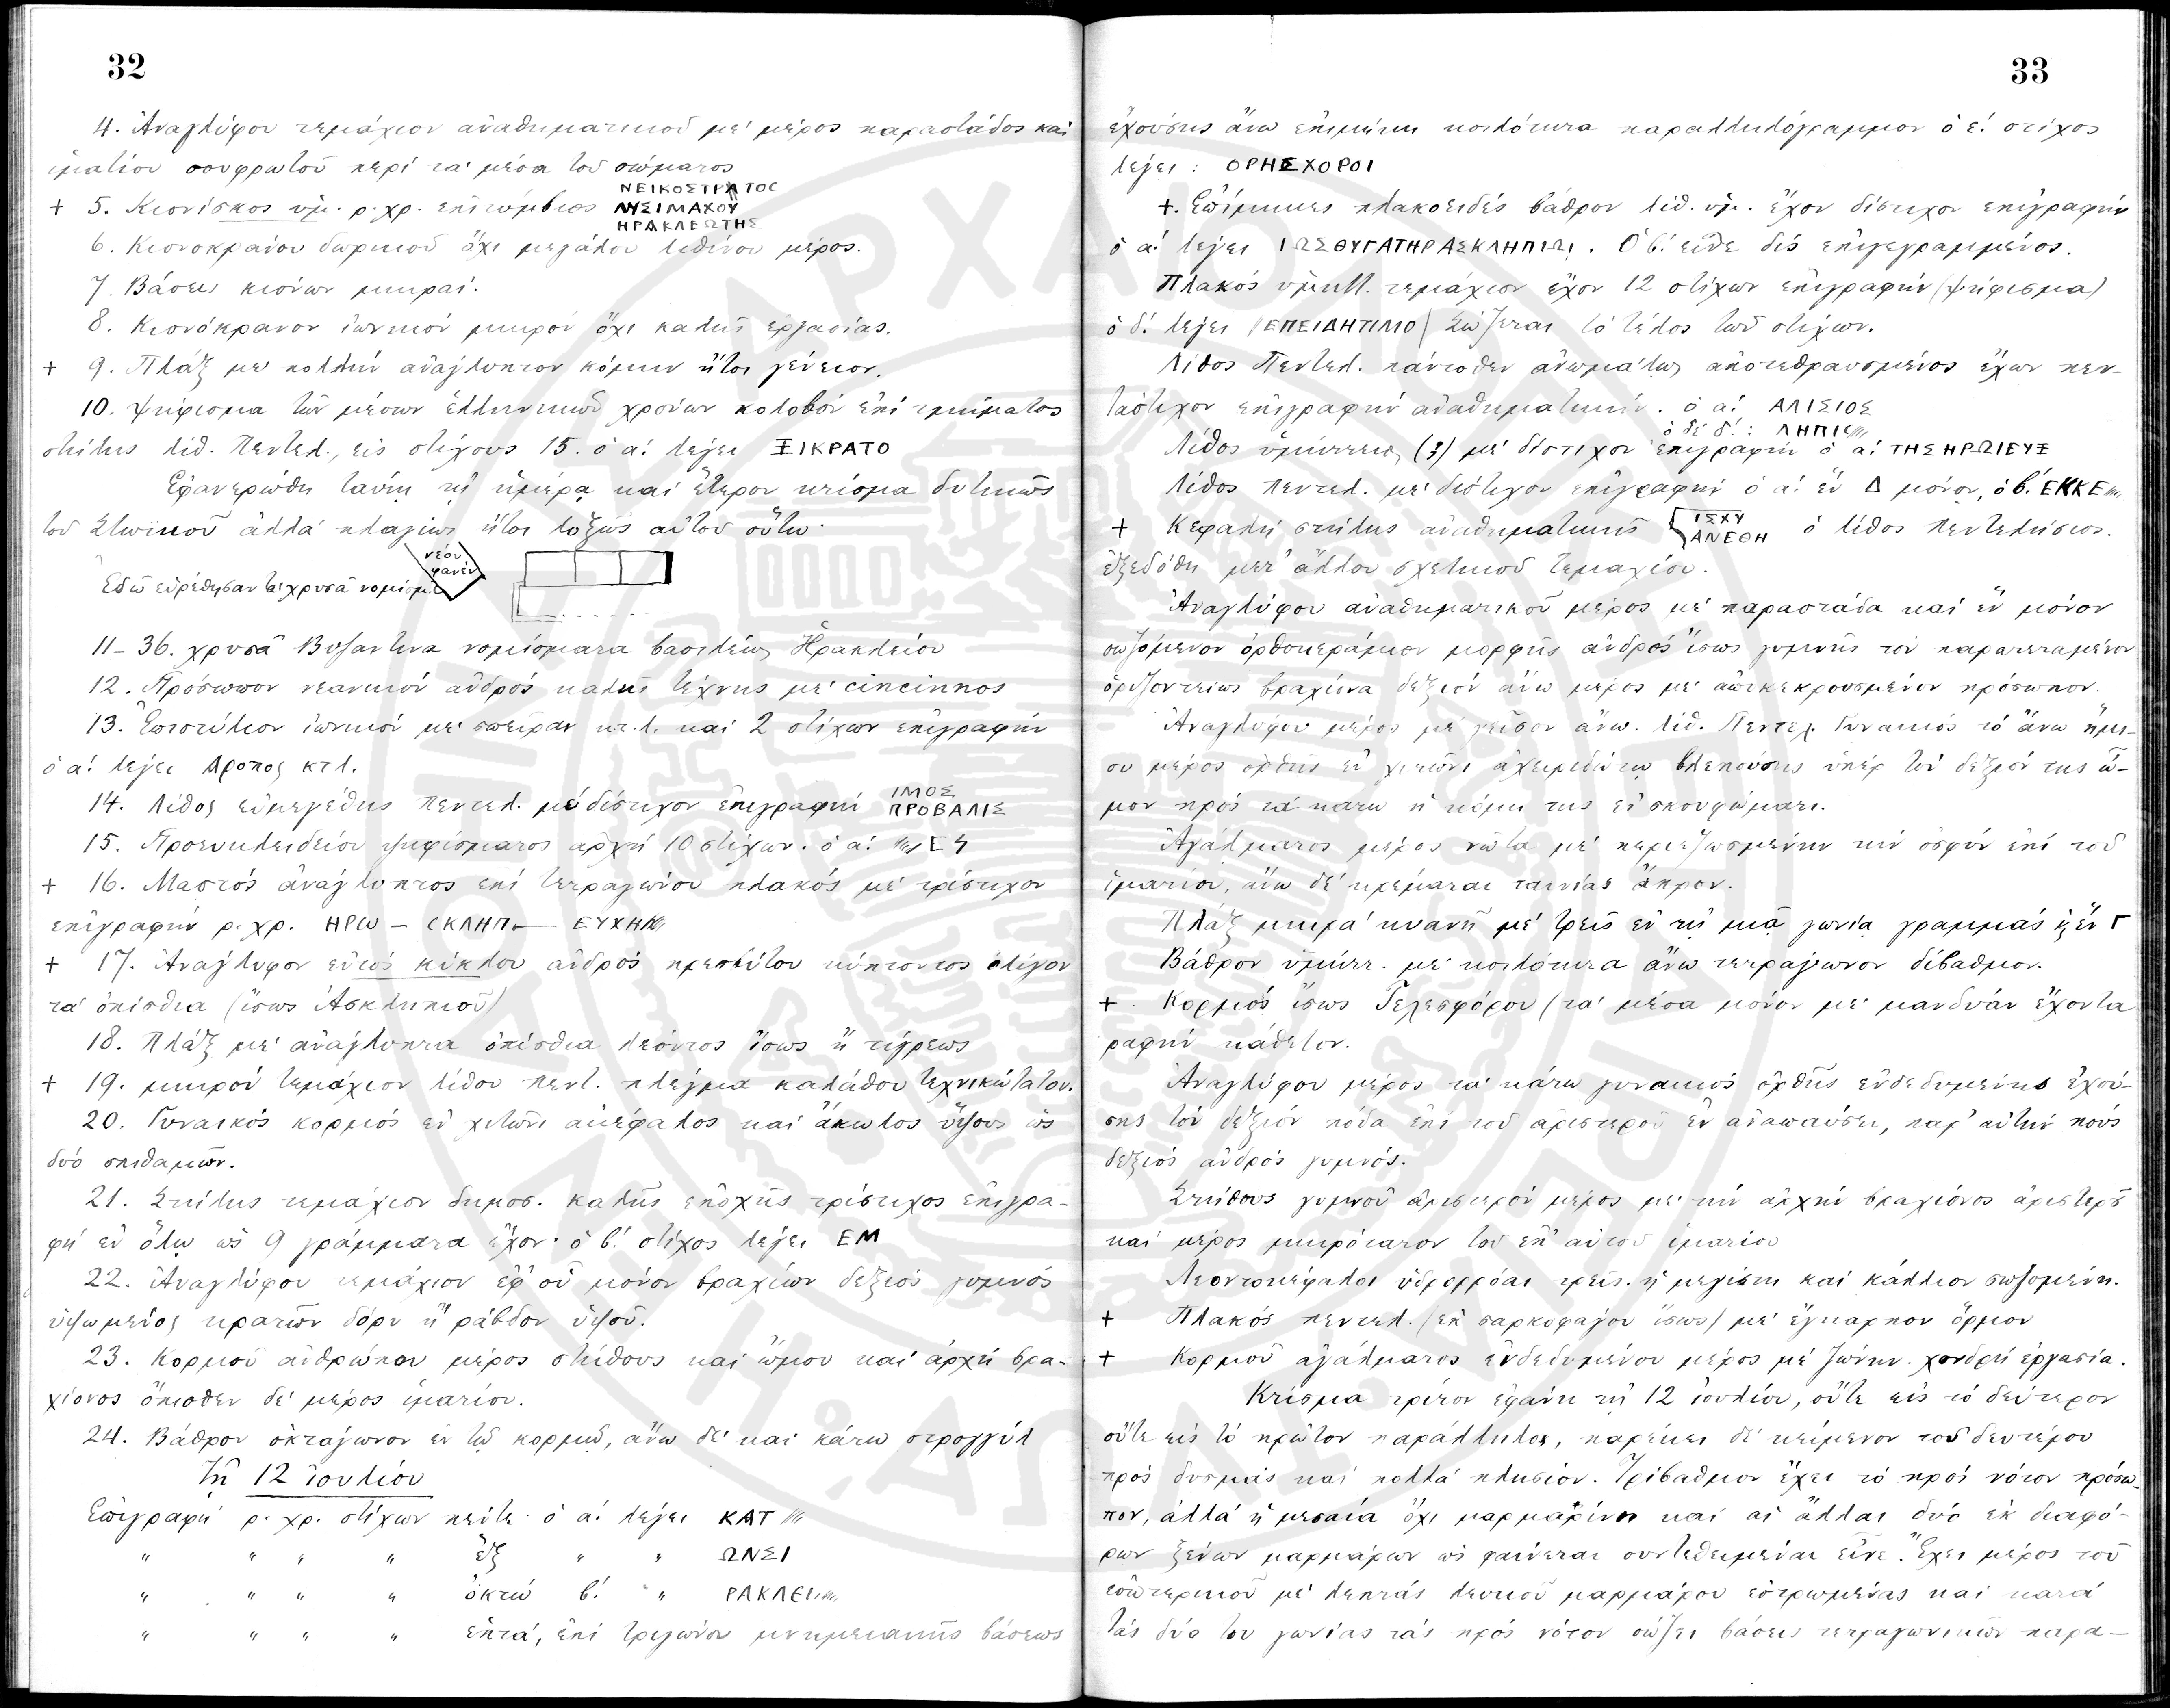 32
4. Ἀναγλύφου τεμάχιον ἀναθηματικοῦ μὲ μέρος παραστάδος καὶ
ἱματίου σουφρωτοῦ περὶ τὰ μέσα τοῦ σώματος
+ 5. Κιονίσκος ὑμ. ρ. χρ. ἐπιτύμβιος ΝΕΙΚΟΣΤΡΑΤΟΣ
ΛΥΣΙΜΑΧΟΥ
ΗΡΑΚΛΕΩΤΗΣ
6. Κιονοκράνου δωρικοῦ ὄχι μεγάλου λιθίνου μέρος.
7. Βάσεις κιόνων μικραί.
8. Κιονόκρανον ἰωνικὸν μικρὸν ὄχι καλῆς ἐργασίας.
+ 9. Πλὰξ μὲ πολλὴν ἀνάγλυπτον κόμην ἤτοι γένειον.
10. Ψήφισμα τῶν μέσων ἑλληνικῶν χρόνων κολοβὸν ἐπὶ τμήματος
στήλης λίθ. Πεντελ., εἰς στίχους 15. ὁ α΄. λέγει ΞΙΚΡΑΤΟ
Ἐφανερώθη ταύτῃ τῇ ἡμέρᾳ καὶ ἕτερον κτίσμα δυτικῶς
τοῦ Στωϊκοῦ ἀλλὰ πλαγίως ἤτοι λοξῶς αὐτοῦ οὕτω·
νέον
φανὲν
Ἐδῶ εὑρέθησαν τὰ χρυσᾶ νομίσμ.
11-36. χρυσᾶ Βυζαντινὰ νομίσματα βασιλέως Ἡρακλείου
12. Πρόσωπον νεανικὸν ἀνδρὸς καλῆς τέχνης μὲ cincinnos
13. Ἐπιστύλιον ἰωνικὸν μὲ σπεῖραν κτλ. καὶ 2 στίχων ἐπιγραφὴν
ὁ α΄. λέγει Δροπος κτλ.
14. Λίθος εὐμεγέθης Πεντελ. μὲ δίστιχον ἐπιγραφὴν ΙΜΟΣ
ΠΡΟΒΑΛΙΣ
15. Προευκλειδείου ψηφίσματος ἀρχὴ 10 στίχων. ὁ α΄. ΕΣ
+ 16. Μαστὸς ἀνάγλυπτος ἐπὶ τετραγώνου πλακὸς μὲ τρίστιχον
ἐπιγραφὴν ρ. χρ. ΗΡΩ – ΣΚΛΗΠ – ΕΥΧΗΝ
+ 17. Ἀνάγλυφον ἐντὸς κύκλου ἀνδρὸς πρεσβύτου κύπτοντος ὀλίγον
τὰ ὀπίσθια (ἴσως Ἀσκληπιοῦ)
18. Πλὰξ μὲ ἀνάγλυπτα ὀπίσθια λέοντος ἴσως ἢ τίγρεως
+ 19. μικρὸν τεμάχιον λίθου πεντ. πλέγμα καλάθου τεχνικώτατον.
20. Γυναικὸς κορμὸς ἐν χιτῶνι ἀκέφαλος καὶ ἄκωλος ὕψους ὡς
δύο σπιθαμῶν.
21. Στήλης τεμάχιον δημοσ. καλῆς ἐποχῆς τρίστιχος ἐπιγρα-
φὴ ἐν ὅλῳ ὡς 9 γράμματα ἔχον· ὁ β΄. στίχος λέγει ΕΜ
22. Ἀναγλύφου τεμάχιον ἐφ' οὗ μόνον βραχίων δεξιὸς γυμνὸς
ὑψωμένος κρατῶν δόρυ ἢ ράβδον ὑψοῦ.
23. Κορμοῦ ἀνθρώπου μέρος στήθους καὶ ὤμου καὶ ἀρχὴ βρα-
χίονος ὄπισθεν δὲ μέρος ἱματίου.
24. Βάθρον ὀκτάγωνον ἐν τῷ κορμῷ, ἄνω δὲ καὶ κάτω στρογγύλ
Τῇ 12 Ἰουλίου
Ἐπιγραφὴ ρ. χρ. στίχων πέντε ὁ α΄. λέγει ΚΑΤ
" " " " ἓξ " " ΩΝΣΙ
" " " " ὀκτὼ β΄. " ΡΑΚΛΕΙ
" " " " ἑπτά, ἐπὶ τριγώνου μνημειακῆς βάσεως
33
ἐχούσης ἄνω ἐπιμήκη κοιλότητα παραλληλόγραμμον ὁ ε΄. στίχος
λέγει: ΟΡΗΣΧΟΡΟΙ
+. Ἐπίμηκες πλακοειδὲς βάθρον λίθ. ὑμ. ἔχον δίστιχον ἐπιγραφὴν
ὁ α΄. λέγει ΙΩΣΘΥΓΑΤΗΡΑΣΚΛΗΠΙΩΙ. Ὁ β΄. εἶνε δὶς ἐπιγεγραμμένος.
Πλακὸς ὑμηττ. τεμάχιον ἔχον 12 στίχων ἐπιγραφὴν (ψήφισμα)
ὁ δ΄. λέγει (ΕΠΕΙΔΗΤΙΜΟ) Σώζεται τὸ τέλος τῶν στίχων.
Λίθος Πεντελ. πάντοθεν ἀνωμάλως ἀποτεθραυσμένος ἔχων πεν-
τάστιχον ἐπιγραφὴν ἀναθηματικήν. ὁ α΄. ΑΛΙΣΙΟΣ
ὁ δὲ δ΄.: ΛΗΠΙΣ
Λίθος ὑμήττειος (;) μὲ δίστιχον ἐπιγραφὴν ὁ α΄. ΤΗΣΗΡΩΙΕΥΞ
Λίθος πεντελ. μὲ δίστιχον ἐπιγραφὴν ὁ α΄. ἓν Δ μόνον, ὁ β΄. ΕΚΚΕ
+ Κεφαλὴ στήλης ἀναθηματικῆς ΙΣΧΥ
ΑΝΕΘΗ ὁ λίθος Πεντελήσιος.
ἐξεδόθη μετ' ἄλλου σχετικοῦ τεμαχίου.
Ἀναγλύφου ἀναθηματικοῦ μέρος μὲ παραστάδα καὶ ἓν μόνον
σωζόμενον ὀρθοκέραμον μορφῆς ἀνδρὸς ἴσως γυμνῆς τὸν παρατεταμένον
ὁριζοντείως βραχίονα δεξιὸν ἄνω μέρος μὲ ἀποκεκρουσμένον πρόσωπον.
Ἀναγλύφου μέρος μὲ γεῖσον ἄνω. λίθ. Πεντελ. Γυναικὸς τὸ ἄνω ἥμι-
συ μέρος ὀρθῆς ἐν χιτῶνι ἀχειριδώτῳ βλεπούσης ὑπὲρ τὸν δεξιόν της ὦ-
μον πρὸς τὰ κάτω ἡ κόμη της ἐν σκουφώματι.
Ἀγάλματος μέρος νῶτα μὲ περιεζωσμένην τὴν ὀσφὺν ἐπὶ τοῦ
ἱματίου, ἄνω δὲ κρέμαται ταινίας ἄκρον.
Πλὰξ μικρὰ κυανῆ μὲ τρεῖς ἐν τῇ μιᾷ γωνίᾳ γραμμὰς ἓν Γ
Βάθρον ὑμήττ. μὲ κοιλότητα ἄνω τετράγωνον δίβαθμον.
+ Κορμὸς ἴσως Τελεσφόρου (τὰ μέσα μόνον μὲ μανδύαν ἔχοντα
ραφὴν κάθετον.
Ἀναγλύφου μέρος τὰ κάτω γυναικὸς ὀρθῆς ἐνδεδυμένης ἐχού-
σης τὸν δεξιὸν πόδα ἐπὶ τοῦ ἀριστεροῦ ἐν ἀναπαύσει, παρ' αὐτὴν ποὺς
δεξιὸς ἀνδρὸς γυμνός.
Στήθους γυμνοῦ ἀριστερὸν μέρος μὲ τὴν ἀρχὴν βραχίονος ἀριστεροῦ
καὶ μέρος μικρότατον τοῦ ἐπ' αὐτοῦ ἱματίου
Λεοντοκέφαλοι ὑδρορρόαι τρεῖς. ἡ μεγίστη καὶ κάλλιον σωζομένη.
+ Πλακὸς πεντελ. (ἐκ σαρκοφάγου ἴσως) μὲ ἔγκαρπον ὅρμον
+ Κορμοῦ ἀγάλματος ἐνδεδυμένου μέρος μὲ ζώνην. χονδρὴ ἐργασία.
Κτίσμα τρίτον ἐφάνη τῇ 12 Ἰουλίου, οὔτε εἰς τὸ δεύτερον
οὔτε εἰς τὸ πρῶτον παράλληλον, παρέκει δὲ κείμενον τοῦ δευτέρου
πρὸς δυσμὰς καὶ πολλὰ πλησίον. Τρίβαθμον ἔχει τὸ πρὸς νότον πρόσω-
πον, ἀλλὰ ἡ μεσαία ὄχι μαρμαρίνη καὶ αἱ ἄλλαι δύο ἐκ διαφό-
ρων ξένων μαρμάρων ὡς φαίνεται συντεθειμέναι εἶνε. Ἔχει μέρος τοῦ
ἐσωτερικοῦ μὲ λεπτὰς λευκοῦ μαρμάρου ἐστρωμένας καὶ κατὰ
τὰς δύο του γωνίας τὰς πρὸς νότον σώζει βάσεις τετραγωνικῶν παρα-